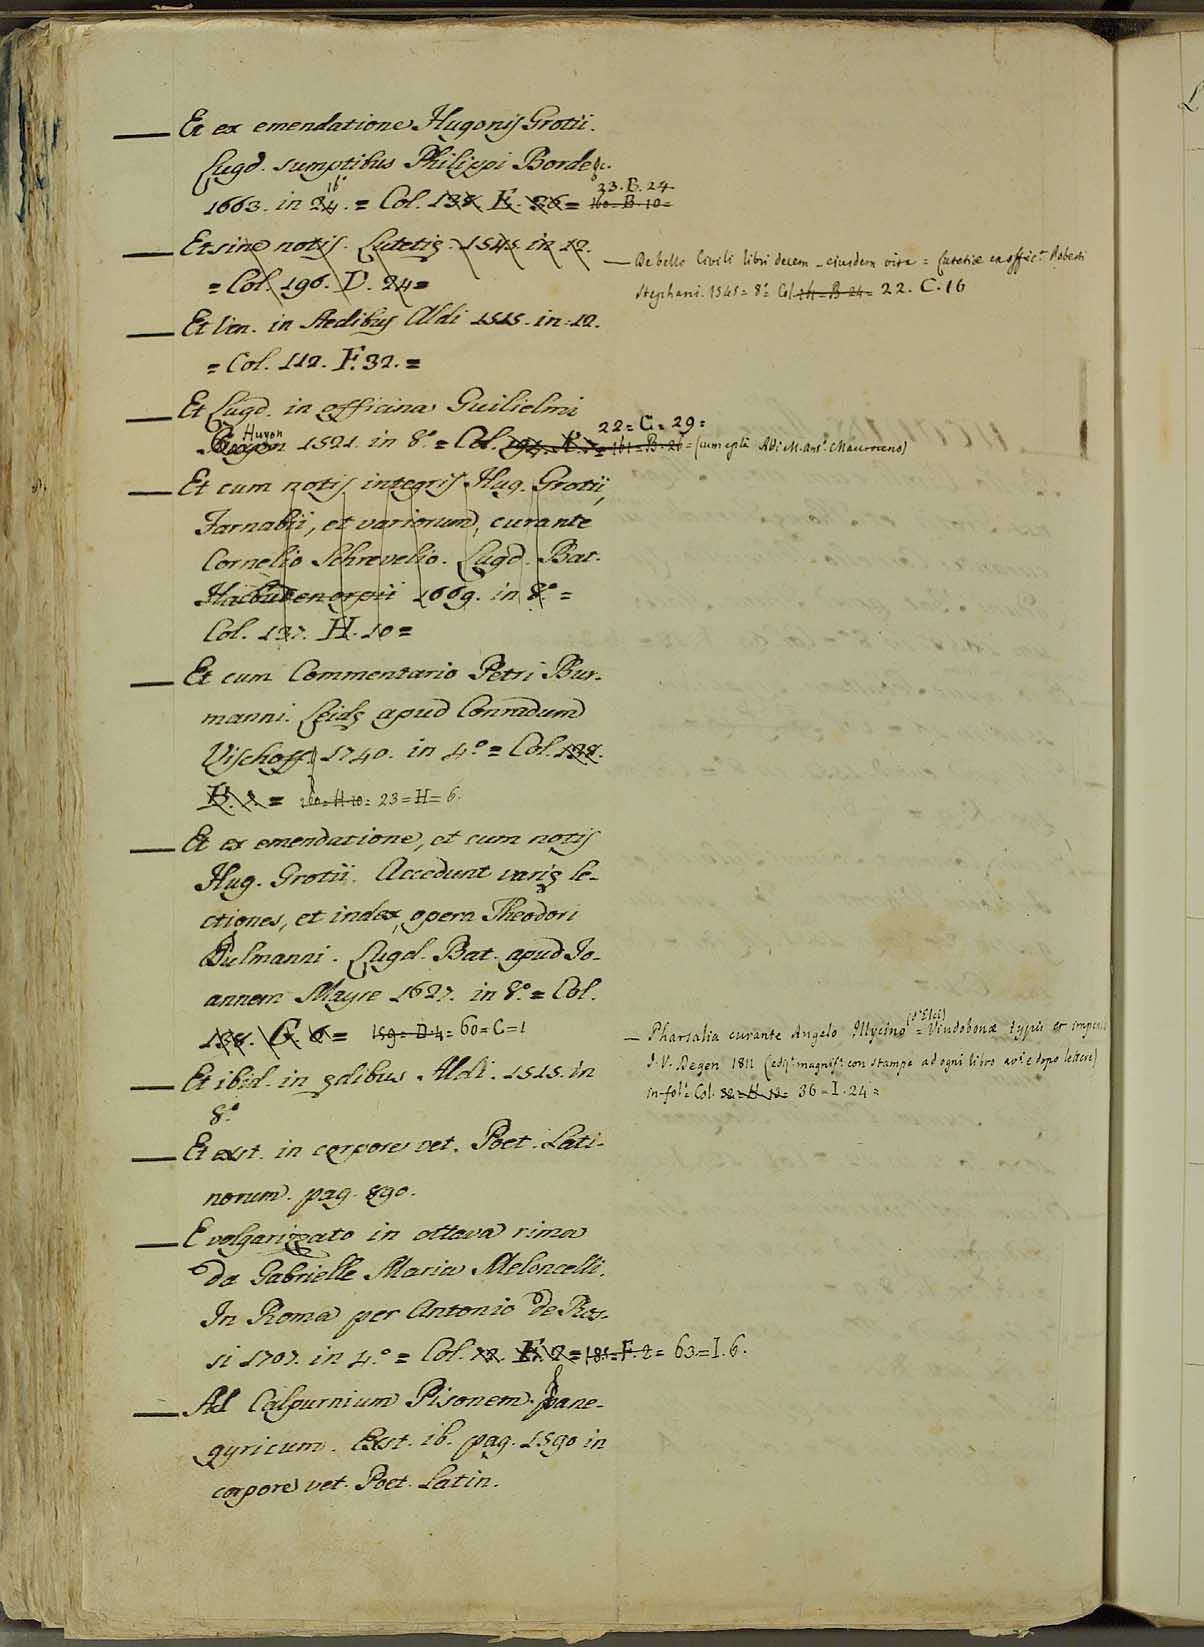 — Et ex emendatione Hugonis Grotii.
Lugd. sumptibus Philippi Borde &c.
16°
23. B. 24
1663. in 24. = Col. 138. E. 26 = 160. B. 10 =
— Et sine notis. Lutetię. 1545 in 12.
= Col. 196. D. 24 =
— Et Ven. in Aedibus Aldi 1515. in 12.
= Col. 112. F. 32. =
— Et Lugd. in officina Guilielmi
Huyon
22 = C = 29 =
1521. in 8.° = Col. = 161 = B = 26 = (cum epla Aldi M. Ant.° Mauroceno)
— Et cum notis integris Hug. Grotii,
Farnabii, et variorum, curante
Cornelio Schrevelio. Lugd. Bat.
1669. in 8.° =
Col. 137. H. 10 =
— Et cum Commentario Petri Bur-
manni. Leidę apud Conradum
Vischoff 1740. in 4.° = Col. 138.
H. 2. = 160 = H 10 = 23 = H = 6.
— Et ex emendatione, et cum notis
Hug. Grotii. Accedunt varię le-
ctiones, et index, opera Theodori
Pulmanni. Lugd. Bat. apud Jo-
annem Mayre 1627. in 8.° = Col.
138. G. 6 = 159 = D. 4 = 60 = C = 1
— Et ibid. in ędibus Aldi. 1515. in
8.°
— Et exst. in corpore vet. Poet. Lati-
norum. pag. 890.
— E volgarizzato in ottava rima
da Gabrielle Maria Meloncelli.
In Roma per Antonio de Ros-
si 1707. in 4.° = Col. 72. F. 2 = 181 = F. 2 = 63 = I. 6.
— Ad Calpurnium Pisonem pane-
gyricum. Exst. ib. pag. 1590 in
corpore vet. Poet. Latin.
— De bello Civili libri decem _ eiusdem vita = Lutetiæ ex offic.ª Roberti
Stephani. 1545 = 8.° Col. B 24 = 22. C. 16
(d'Elci)
— Pharsalia curante Angelo Illycino = Vindobonæ typis et impensis
J. V. Degen 1811 (ediz.e magnif.ª con stampe ad ogni libro av.i e dopo lettere)
in-fol.° Col. 32 = H 12 = 36 = I. 24 =